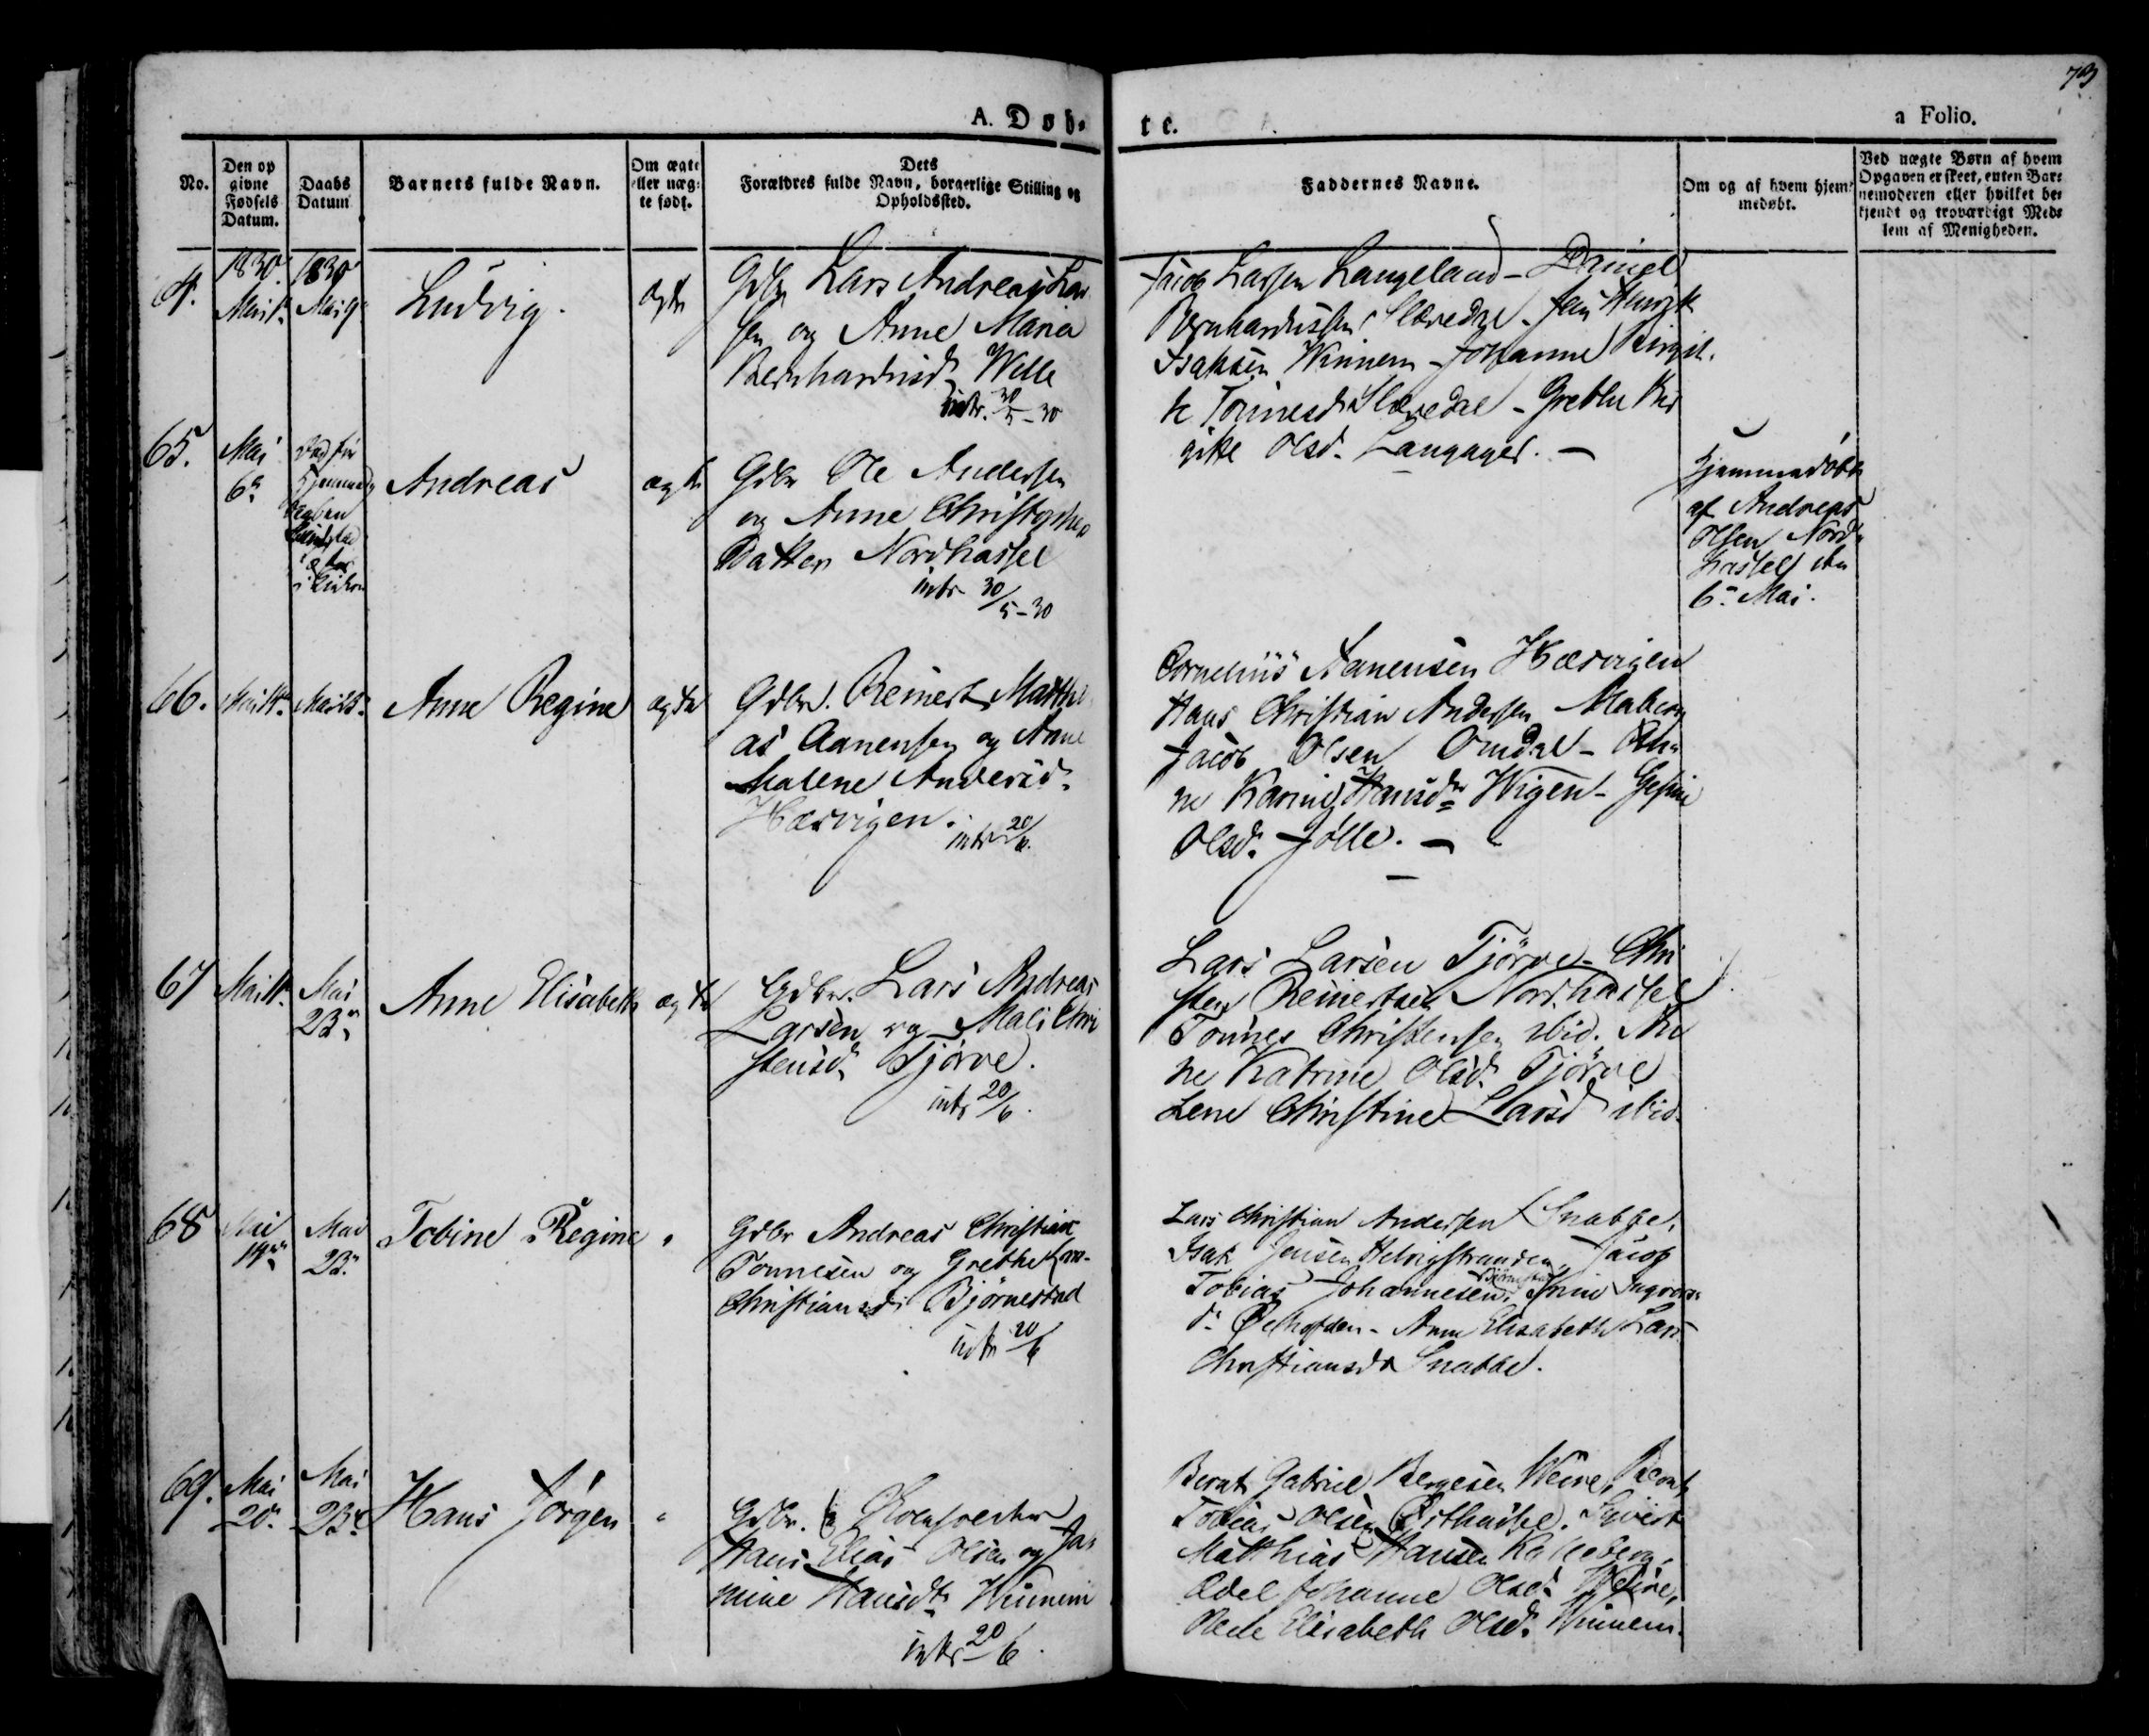 73
A. Døb-
te.
a Folio.
No.
Den op
givne
Fødsels
Datum.
Daabs
Datum
Barnets fulde Navn.
Om ægte
eller uæg-
te født.
Dets
Forældres fulde Navn, borgerlige Stilling og
Opholdssted.
Faddernes Navne.
Om og af hvem hjem-
medøbt.
Ved uægte Børn af hvem
Opgaven er skeet, enten Bar-
nemoderen eller hvilket be-
kjendt og troværdigt Med-
lem af Menigheden.
1830
1830
Mai 9
Ludvig.
ægte
Gdbr Lars Andreas Lar
sen og Anne Maria
Bernhardusd. Welle
intr. 30/5-30
Jacob Larsen Langeland - Daniel
Bernhardussen Slævedal - Jan Henrik
Isaksen Winnem - Johanne Birgit-
te Tönnesd. Slævedal - Grethe Bir
gitte Olsd. Langager. -
65.
Mai
6
Andreas
ægte
Gdbr Ole Andersen
og Anne Christophers
Datter Nordhassel
intr 30/5-30
Hjemmedöbt
af Andreas
Olsen Nord-
hassel den
6 Mai.
66.
Anne Regine
ægte
Gdbr. Reinert Matthi
as Aanensen og Anne
Malene Andersd.
Hervigen.
intr 20/6.
Cornelius Aanensen Hervigen
Hans Christian Andersen Maberg
Jacob Olsen Omdal - An-
ne Karine Hansdr Wigen -
Olsd. Jölle. -
67
Mai
23
Anne Elisabeth
ægte
Gdbr. Lars Andreas
Larsen og Mali Chri
stensd. Tjörve.
intr 20/6.
Lars Larsen Tjörve - Chri
sten Reinertsen Nordhassel
Tönnes Christensen ibid. An
ne Katrine Olsd. Tjörve
Lene Christine Larsd ibid.
68
Mai
19
Mai
23.
Tobine Regine
"
Gdbr Andreas Christian
Tönnesen og Grethe Lars-
Christiansd. Björnestad
intr 20/6
Lars Christian Andersen Snabbe,
Isak Jensen Helvigstranden, Jacob
Björnestad
Tobias Johannesen,
d. - Anne Elisabeth Lars
Christiansdr Snabbe.
69.
Mai
20.
Mai
23
Hans Jörgen
"
Gdbr.
Hans Elias Olsen og Ja-
mine Hansdr Winnem
intr 20/6.
Bernt Gabriel Børgesen Weire, Bernt
Tobias Olsen Østhassel. Sivert
Matthias Hansen Kalleberg,
Edel Johanne Olsd. Weire,
Elisabeth Olsd. Winnem.